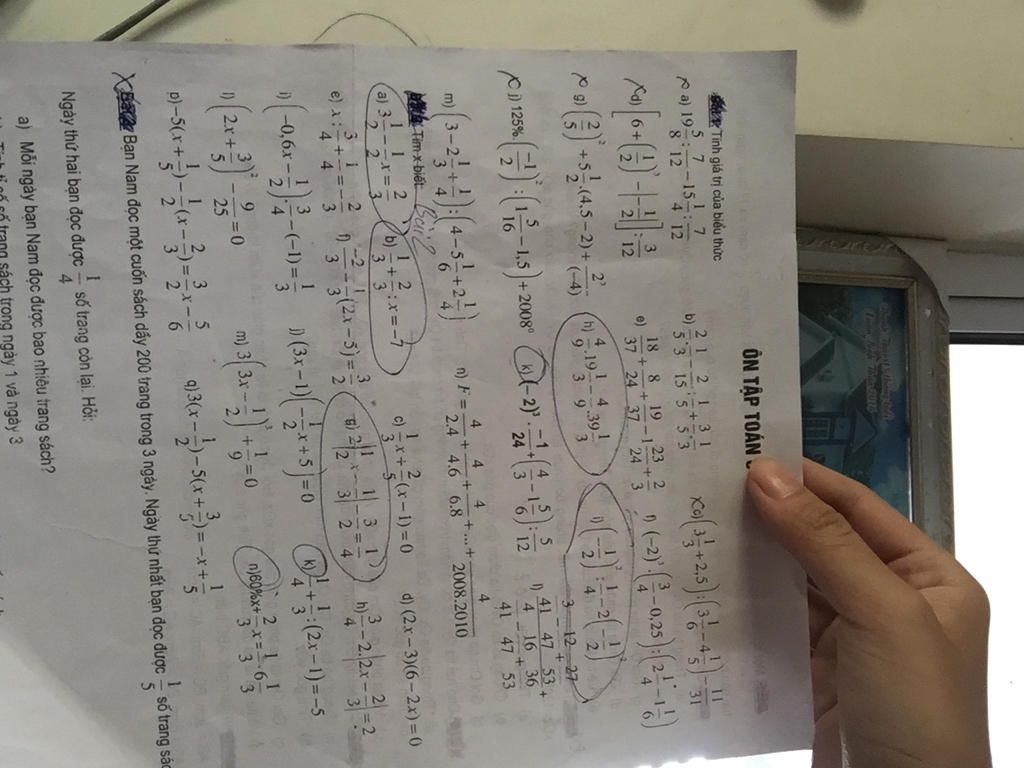 ÔN TẬP TOÁN
Tính giá trị của biểu thức
a) 19 5/8 : 7/12 - 15 1/4 : 7/12 b) 2/5 . 1/3 - 2/15 : 1/5 + 3/5 . 1/3 c) (3 1/3 + 2,5) : (3 1/6 - 4 1/5) - 11/31
d) [6 + (1/2)³ - |-1/2|] : 3/12 e) 18/37 + 8/24 + 19/37 - 1 23/24 + 2/3 f) (-2)³ . (3/4 - 0,25) : (2 1/4 - 1 1/6)
g) (2/5)² + 5 1/2 . (4,5 - 2) + 2³/(-4) h) 4/9 . 19 1/3 - 4/9 . 39 1/3 i) (-1/2)² : 1/4 - 2(-1/2)²
j) 125% . (-1/2)² : (1 5/16 - 1,5) + 2008⁰ k) (-2)³ . -1/24 + (4/3 - 1 5/6) : 5/12 l)
m) (3 - 2 1/3 + 1/4) : (4 - 5 1/6 + 2 1/4) n) F = 4/2.4 + 4/4.6 + 4/6.8 + ... + 4/2008.2010
Tìm x biết:
a) 3 1/2 - 1/2 x = 2/3 b) 1/3 + 2/3 : x = -7 c) 1/3 x + 2/5 (x - 1) = 0 d) (2x - 3)(6 - 2x) = 0
e) x : 3/4 + 1/4 = -2/3 f) -2/3 - 1/3 (2x - 5) = 3/2 g) 2|1/2 x - 1/3| - 3/2 = 1/4 h) 3/4 - 2.|2x - 2/3| = 2
i) (-0,6x - 1/2) . 3/4 - (-1) = 1/3 j) (3x - 1)(-1/2 x + 5) = 0 k) 1/4 + 1/3 : (2x - 1) = -5
l) (2x + 3/5)² - 9/25 = 0 m) 3(3x - 1/2)³ + 1/9 = 0 n) 60%x + 2/3 x = 1/3 . 6 1/3
p) -5(x + 1/5) - 1/2 (x - 2/3) = 3/2 x - 5/6 q) 3(x - 1/2) - 5(x + 3/5) = -x + 1/5
Bạn Nam đọc một cuốn sách dầy 200 trang trong 3 ngày. Ngày thứ nhất bạn đọc được 1/5 số trang
Ngày thứ hai bạn đọc được 1/4 số trang còn lại. Hỏi:
a) Mỗi ngày bạn Nam đọc được bao nhiêu trang sách?
số trang sách trong ngày 1 và ngày 3